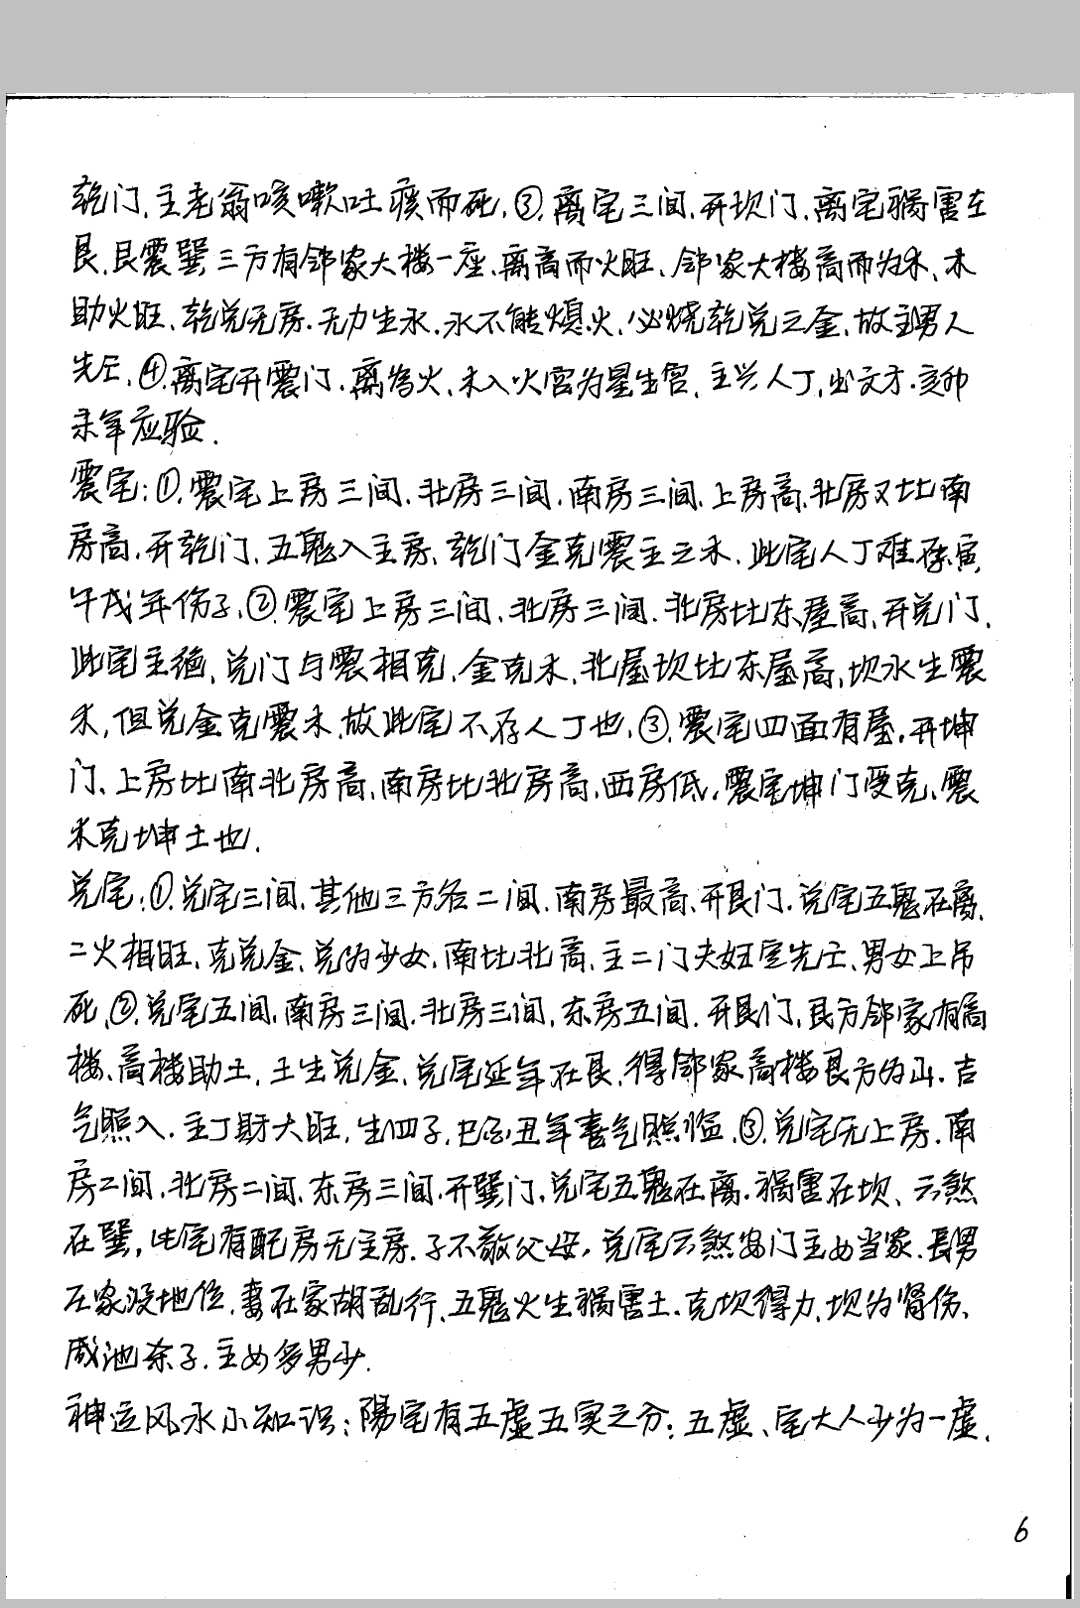 乾门、主老翁咳嗽吐痰而死,③、离宅三间、开坎门、离宅祸害在
艮、艮震巽三方有邻家大楼一座、离高而火旺、邻家大楼高而为木、木
助火旺、乾兑无房、无力生水、水不能熄火、必烧乾兑之金、故主男人
先亡、④、离宅开震门、离为火、木入火宫为星生宫、主兴人丁,出文才、亥卯
未年应验.
震宅:①、震宅上房三间、北房三间、南房三间、上房高、北房又比南
房高、开乾门、五鬼入主房、乾门金克震主之木、此宅人丁难存、寅
午戌年伤子、②、震宅上房三间、北房三间、北房比东屋高、开兑门、
此宅主绝、兑门与震相克、金克木、北屋坎比东屋高、坎水生震
木,但兑金克震木、故此宅不存人丁也、③、震宅四面有屋、开坤
门、上房比南北房高、南房比北房高、西房低、震宅坤门受克、震
木克坤土也.
兑宅:①、兑宅三间、其他三方各二间、南房最高、开艮门、兑宅五鬼在离、
二火相旺、克兑金、兑为少女、南比北高、主二门夫妇定先亡、男女上吊
死、②、兑宅五间、南房三间、北房三间、东房五间、开艮门、艮方邻家有高
楼、高楼助土、土生兑金、兑宅延年在艮、得邻家高楼艮方为山、吉
气照入、主丁财大旺,生四子,巳酉丑年喜气照临、③、兑宅无上房、南
房二间、北房二间、东房三间、开巽门、兑宅五鬼在离、祸害在坎、六煞
在巽,此宅有配房无主房、子不敬父母,兑宅六煞安门主女当家、長男
在家没地位、妻在家胡乱行、五鬼火生祸害土、克坎得力、坎为肾伤、
咸池杀子、主女多男少.
神运风水小知识:陽宅有五虚五实之分:五虚、宅大人少为一虚、
6